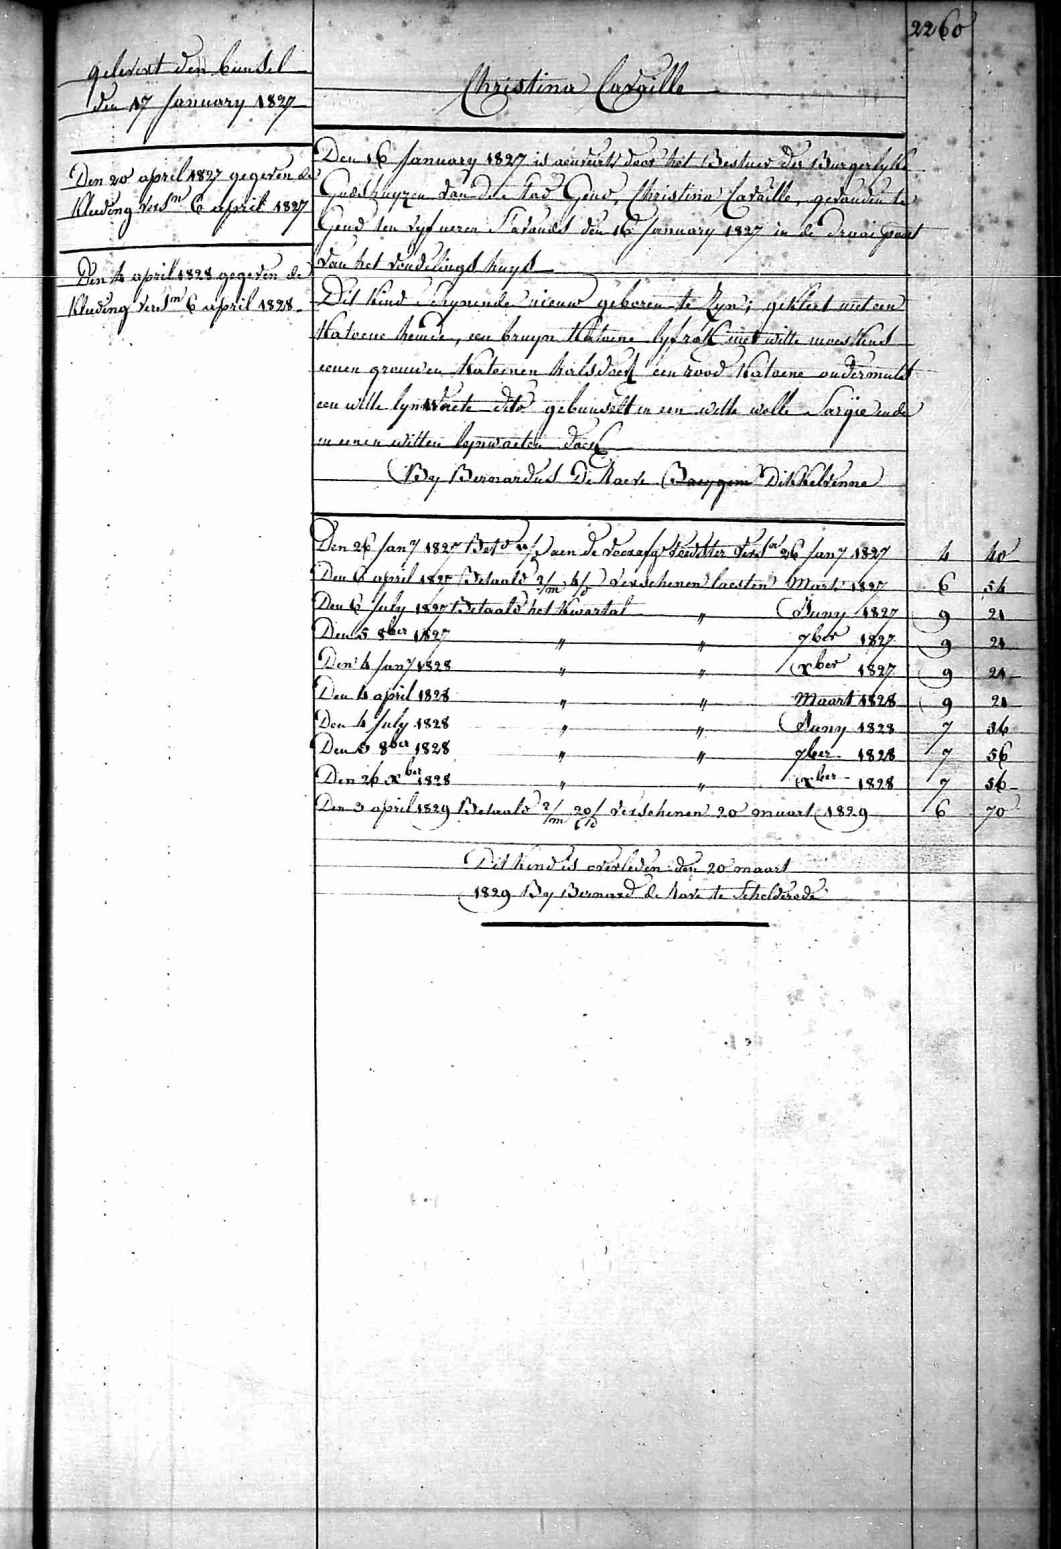 2260
gelevert den bundel
den 17 January 1827
Den 20 april 1827 gegeven de
Kleeding vers.n 6 april 1827
Den 4 april 1828 gegeven de
Kleeding vers.m 6 april 1828
Christina Cavaille
Den 16 January 1827 is aenveirt door het Bestuer der Burgerlyke
Godshuyzen van de stad Gend, Christina Cavaille, gevonden te
Gend ten vyf ueren s'avonds den 16 January 1827 in de draai
van het vondelings huys
Dit kind schynende nieuw geboren te zyn; gekleet met een
Katoene hemde, een bruyn Katoene lyfrok met witte moeskens
eenen grouwen Katoenen halsdoek een rood Katoene ondermuts
een witte lynwaete dito gebundelt in een witte wolle Sargie ende
in eenen witten lynwaeten doek
By Bernardus De Raeve Baeygem Dikkelvenne
Den 26 Jany 1827 Bet.d aen de 26 Jany 1827 4 40
Den 6 april 1827 Betaald verschenen laesten Maart 1827 6 54
Den 6 July 1827 Betaald het Kwartal " Juny 1827 9 21
Den 5 8ber 1827 " " 7ber 1827 9 21
Den 4 Jany 1828 " " xber 1827 9 21
Den 4 april 1828 " " Maart 1828 9 21
Den 4 July 1828 " " Juny 1828 7 56
Den 3 8ber 1828 " " 7ber 1828 7 56
Den 26 xber 1828 " " xber 1828 7 56
Den 3 april 1829 Betaald 2/m 20/d verschenen 20 maart 1829 6 70
Dit kind is overleden den 20 maart
1829 By Bernard de Rave te Schelderode